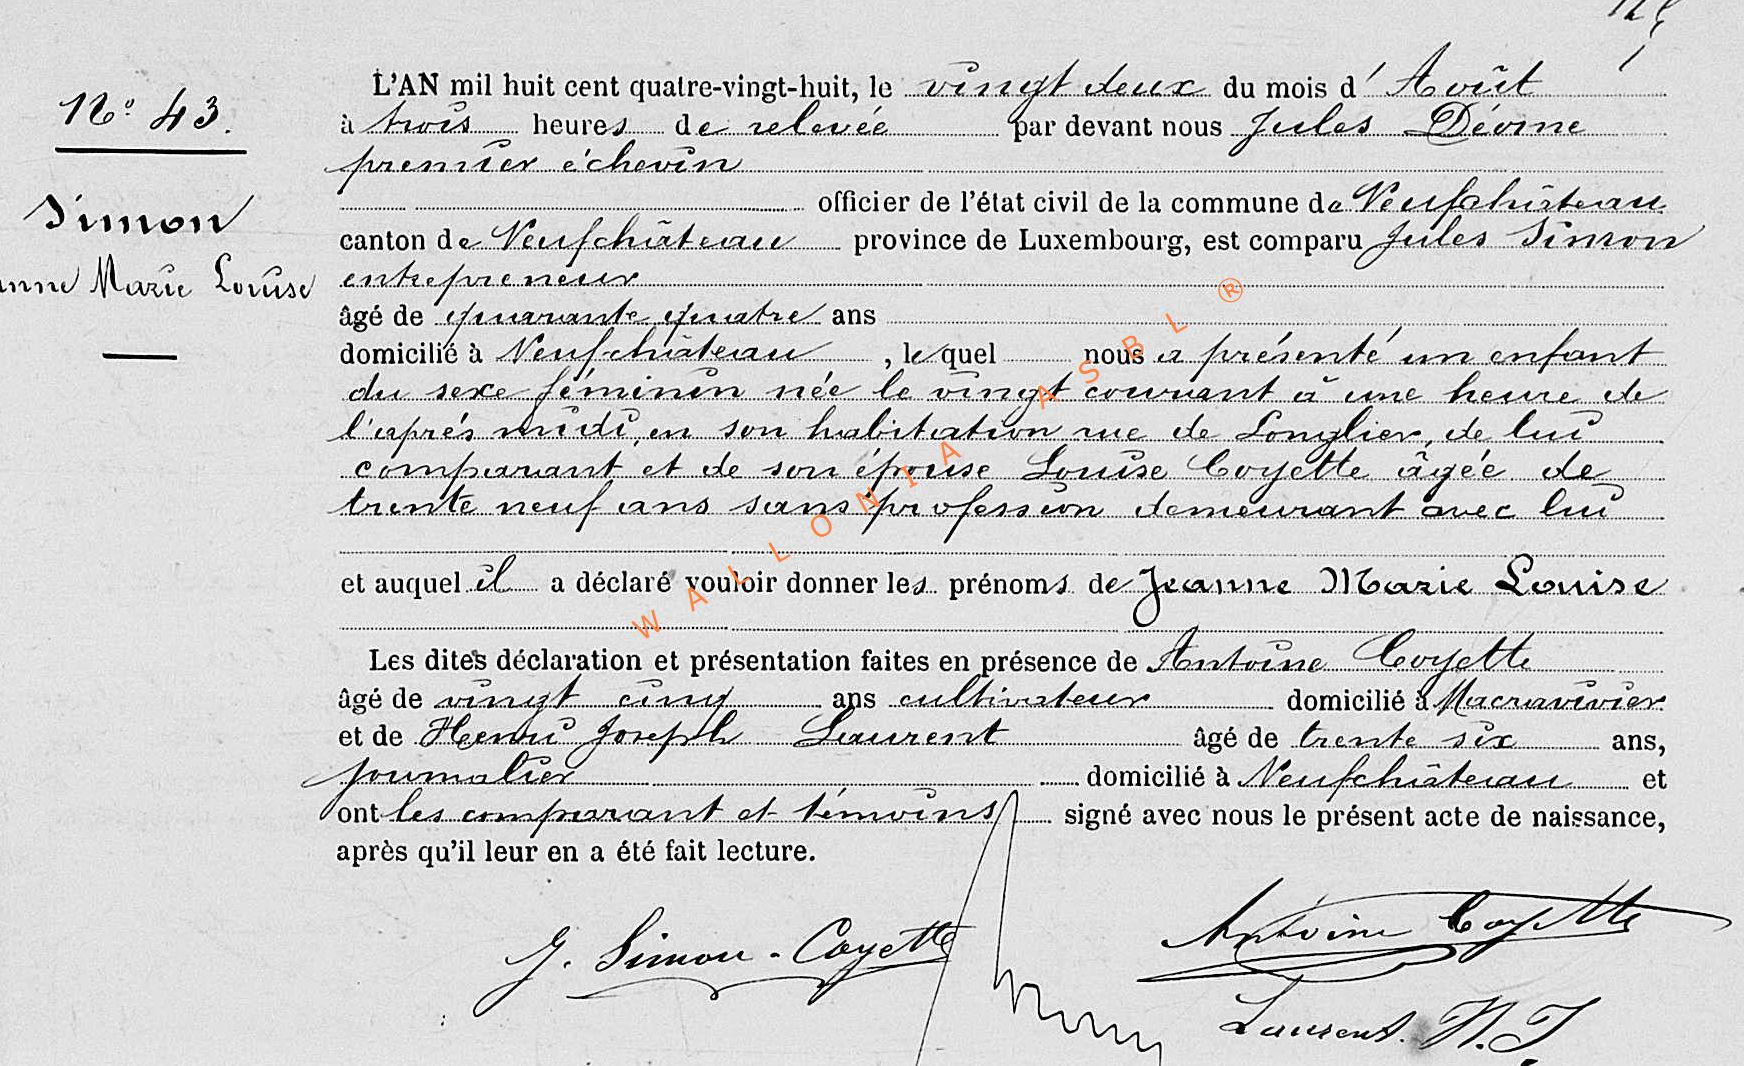 N° 43.
Simon
Marie Louise
L'AN mil huit cent quatre-vingt-huit, le vingt deux du mois d'Août
à trois heures de relevée par devant nous Jules
premier échevin
officier de l'état civil de la commune de Neufchâteau
canton de Neufchâteau province de Luxembourg, est comparu Jules Simon
entrepreneur
âgé de quarante quatre ans
domicilié à Neufchâteau, lequel nous a présenté un enfant
du sexe féminin née le vingt courant à une heure de
l'après midi, en son habitation rue de Longlier, de lui
comparant et de son épouse Louise Coyette âgée de
trente neuf ans sans profession demeurant avec lui
et auquel il a déclaré vouloir donner les prénoms de Jeanne Marie Louise
Les dites déclaration et présentation faites en présence de Antoine Coyette
âgé de vingt cinq ans cultivateur domicilié à Macravivier
et de Henri Joseph Laurent âgé de trente six ans,
journalier domicilié à Neufchâteau et
ont les comparant et témoins signé avec nous le présent acte de naissance,
après qu'il leur en a été fait lecture.
J. Simon-Coyette
Antoine Coyette
Laurent. H.J.
WALLONIA ASBL ®